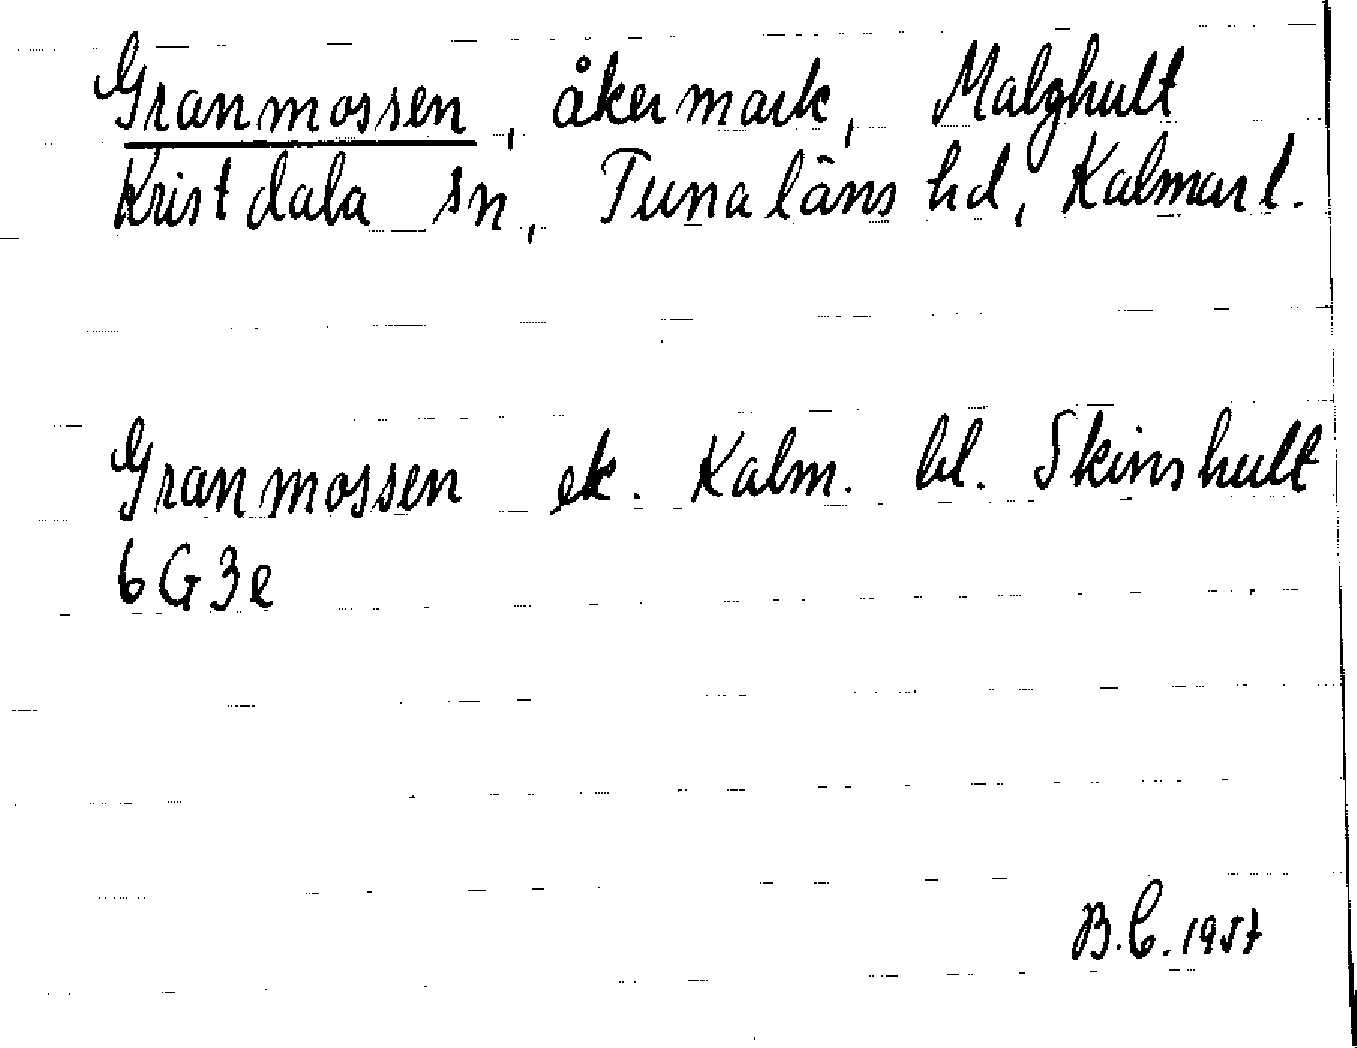 Granmossen, åkermark, Malghult
Kristdala sn, Tunaläns hd, Kalmar l.
Granmossen ek. Kalm. bl. Skinshult
6G3e
B.C. 1957